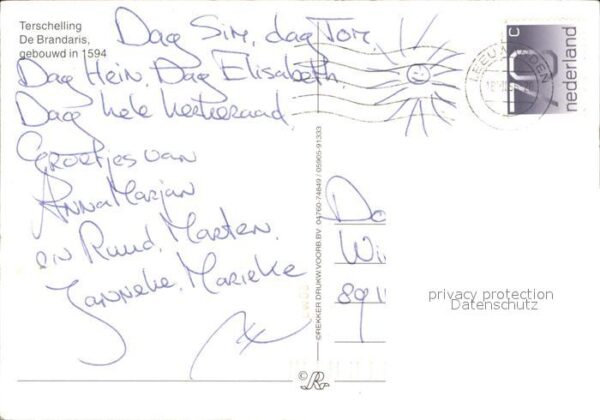 Terschelling
De Brandaris,
gebouwd in 1594
Dag Sim, dag Tom,
Dag Hein, Dag Elisabeth
Dag hele kerkeraad
Groetjes van
AnnaMarjan
en Ruud, Marten,
Janneke, Marieke
X
©REKKER DRUKW.VOORB.BV 04760-74849 / 05965-91333
©R
LEEUWARDEN
70 c
nederland
Do
Wi
8911
privacy protection
Datenschutz